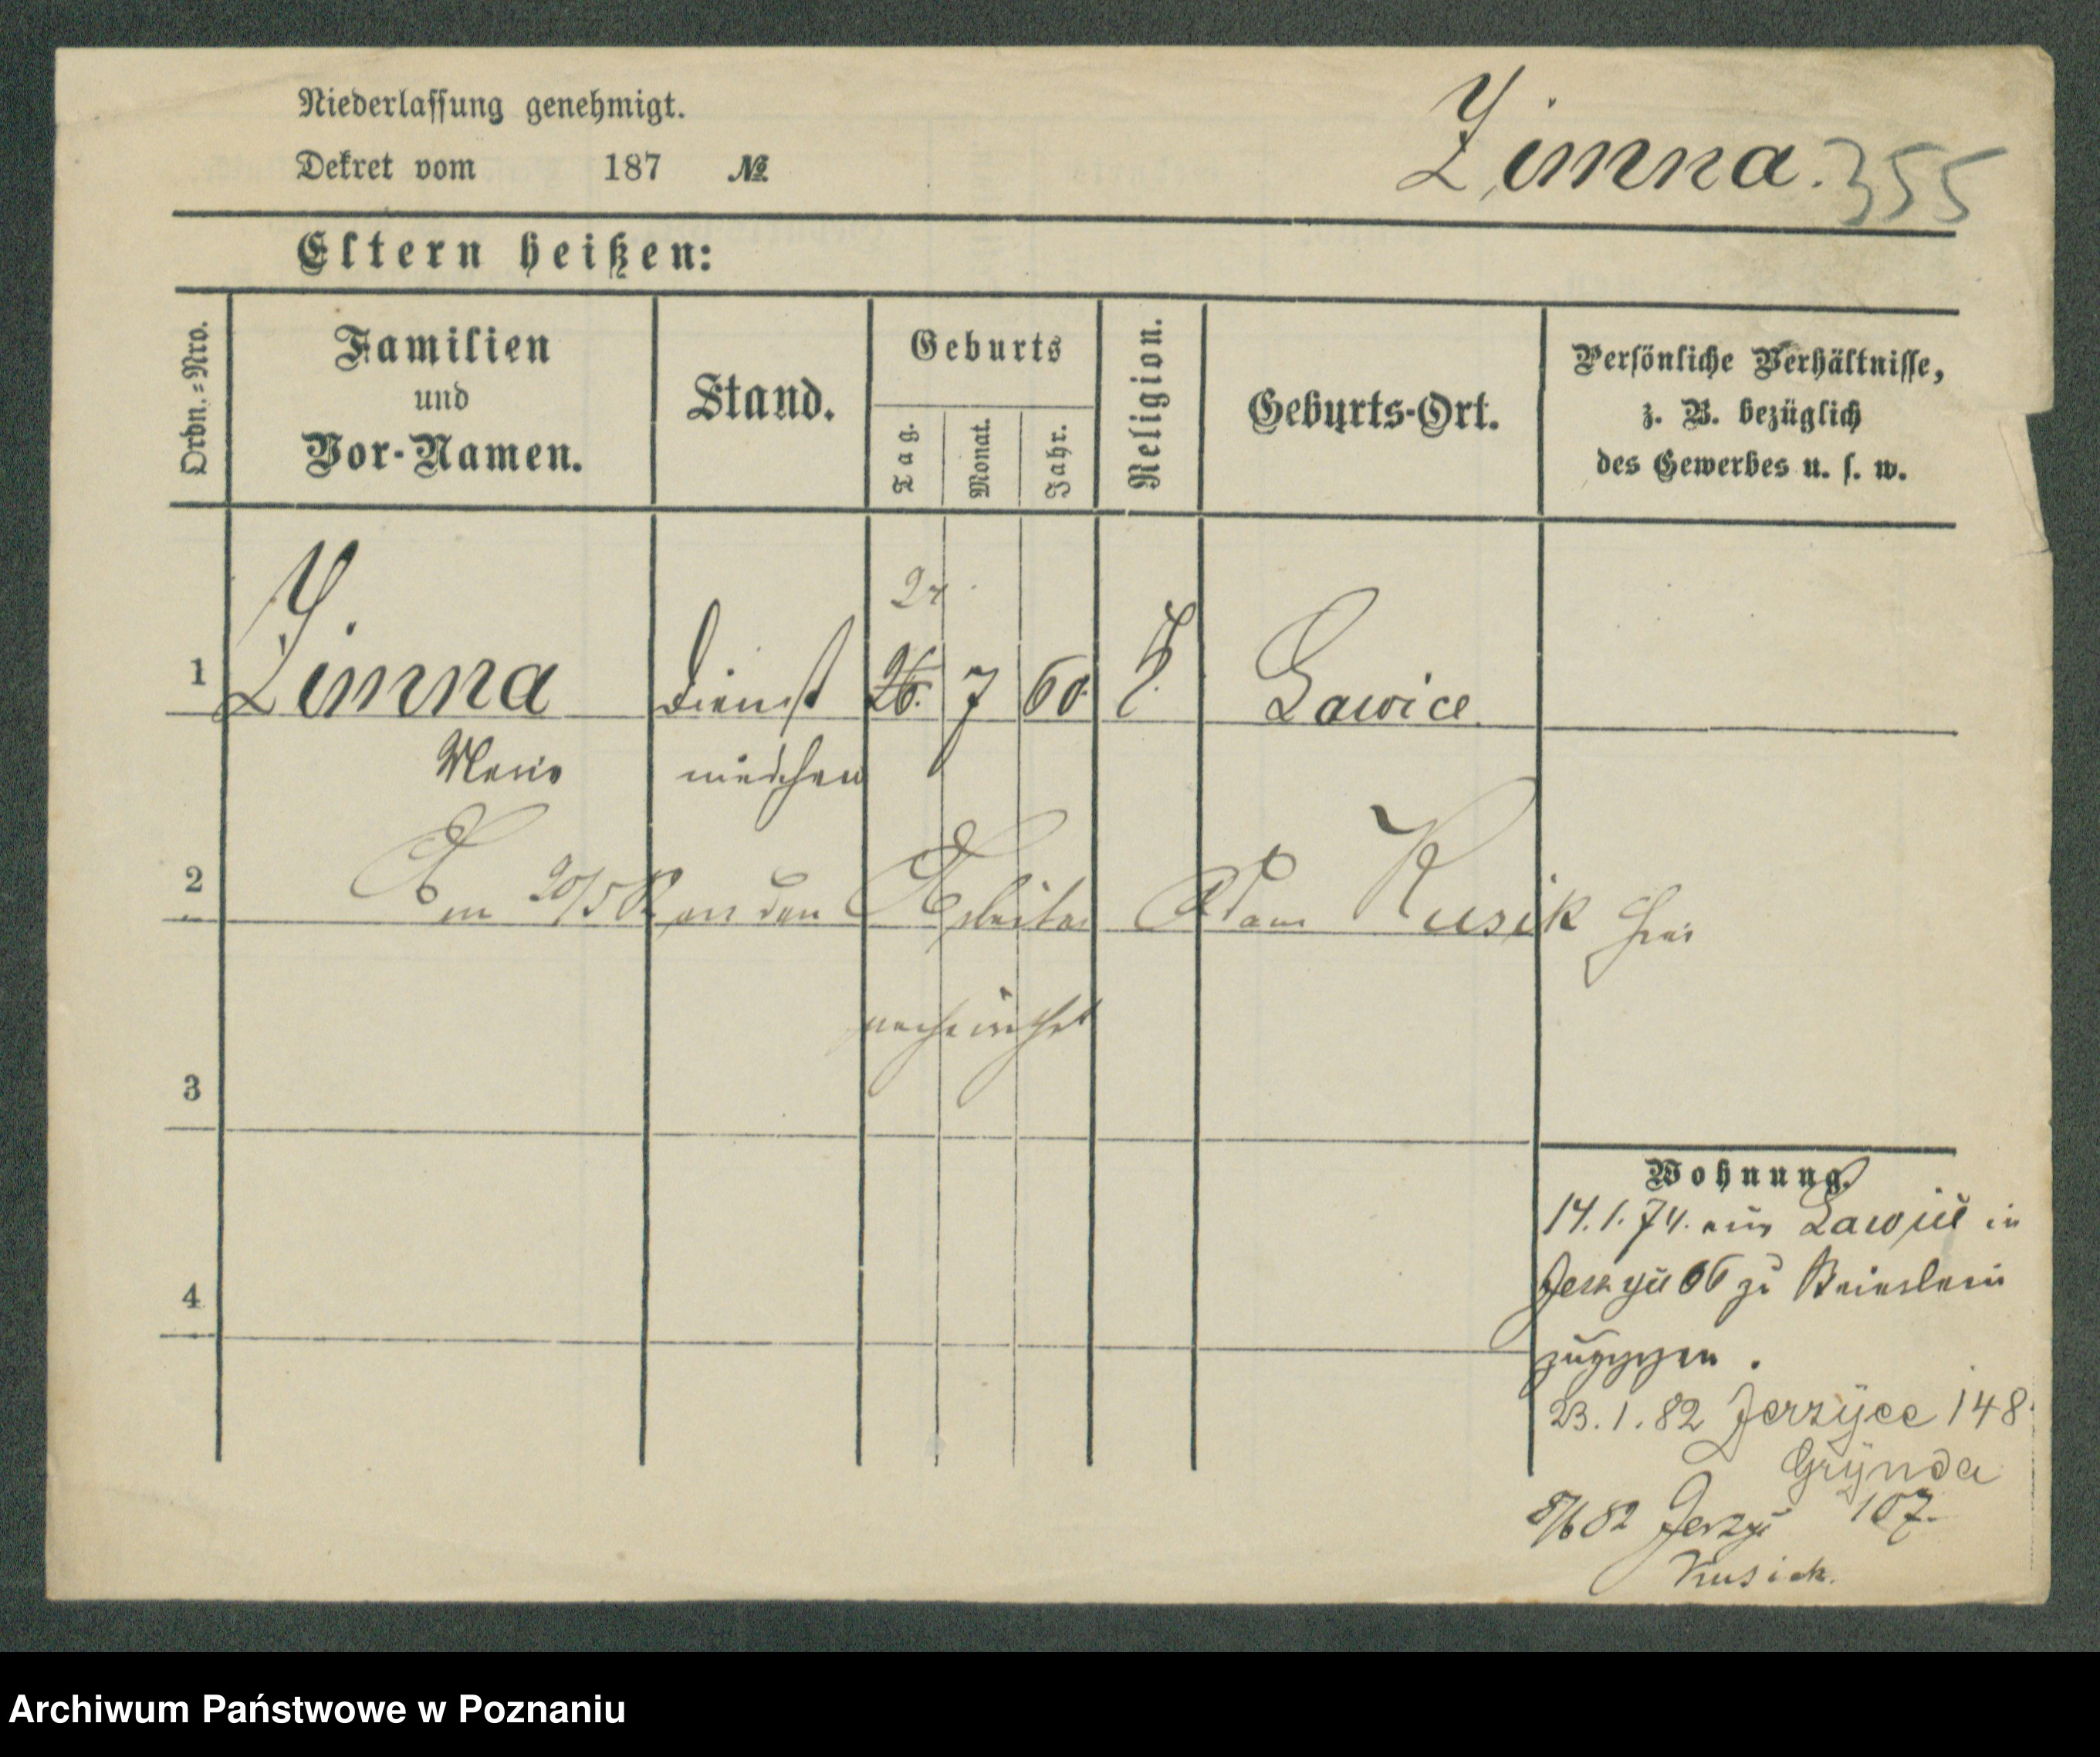 Niederlassung genehmigt.
Dekret vom 187 №
Zimna. 355
Eltern heißen:
Ordn.-Nro.
Familien
und
Vor-Namen.
Stand.
Geburts
Tag.
Monat.
Jahr.
Religion.
Geburts-Ort.
Persönliche Verhältnisse,
z. B. bezüglich
des Gewerbes u. s. w.
1 Zimna Dienst 26. 7 60. Lawice.
mädchen
2 Am 20/5 82 an den Arbeiter Adam Kusik hier
verheirathet
3
4
Wohnung.
14.1.74. aus Lawice in
66 zu
zugezogen.
23.1.82 Jerzÿce 148.
Grÿnda
5/6 82 107.
Kusick.
Archiwum Państwowe w Poznaniu